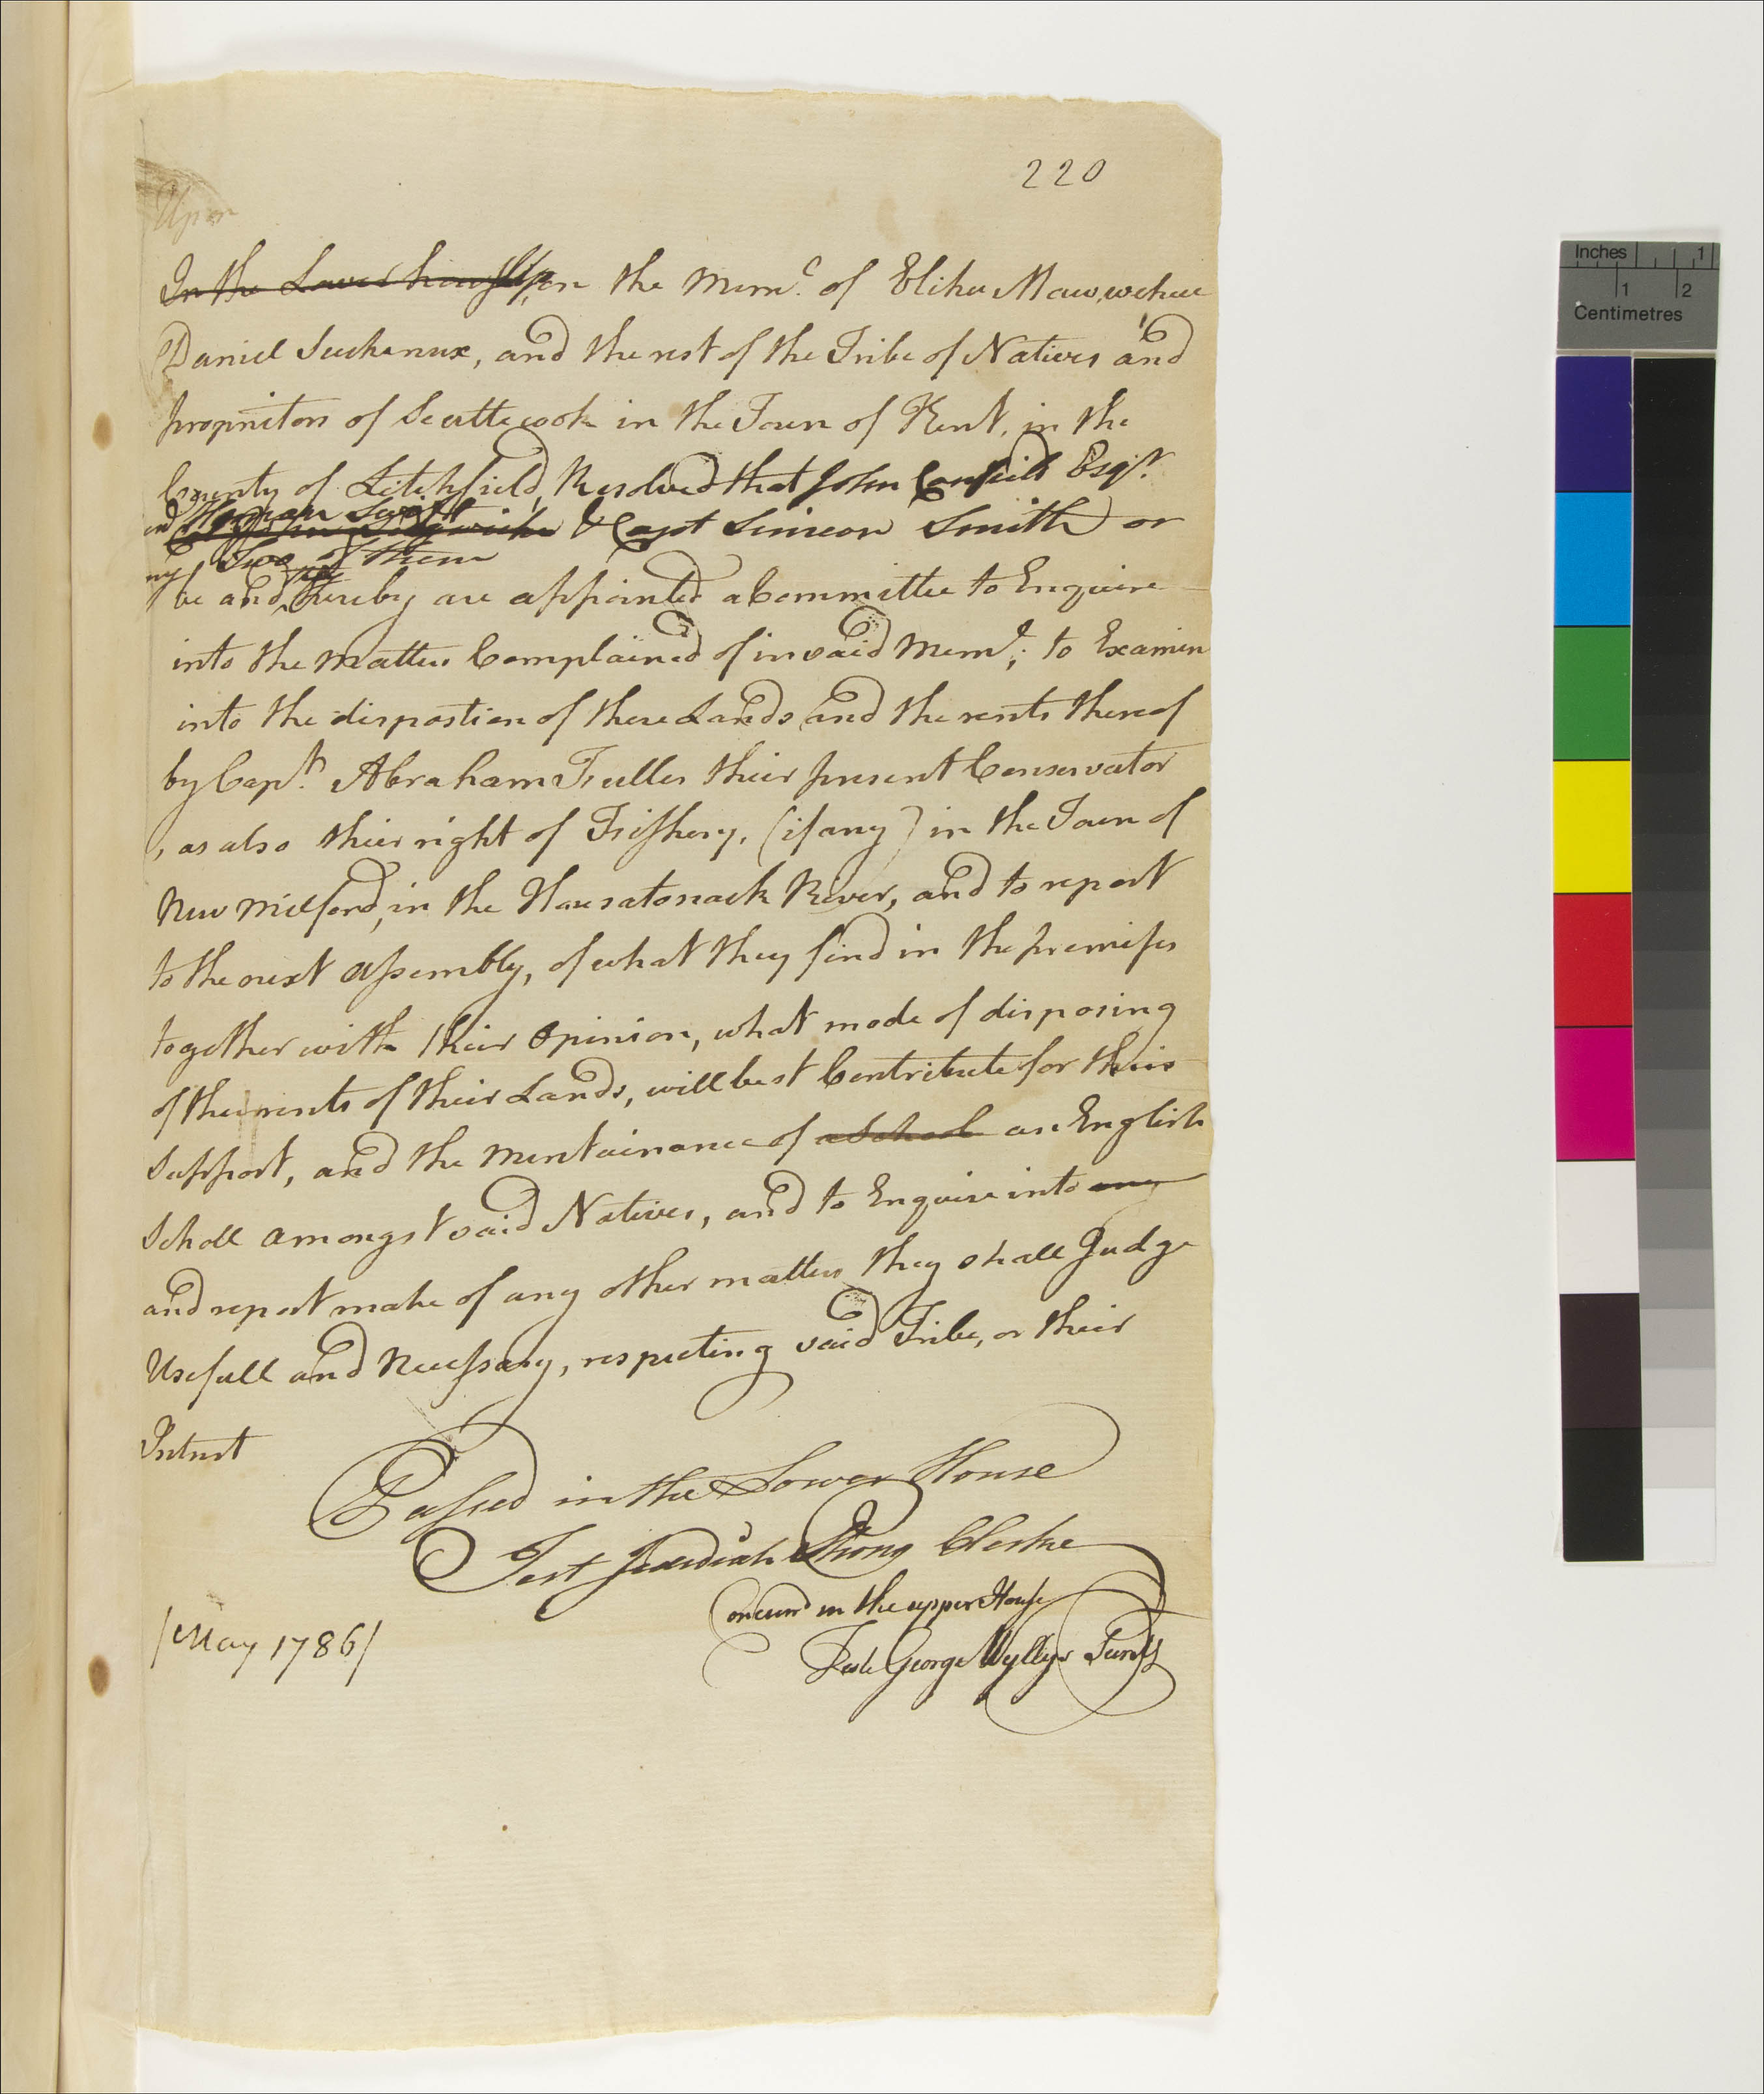 220
Upon
In the Lower house Upon the Mem.ᶜ of Elihu Mawwehue
Daniel Suckanux, and the rest of the Tribe of Natives and
proprietors of Scattecook in the Town of Kent, in the
County of Litchfield, Resolved that John Canfield Esqʳ
and Heman Swift
& Capt Simeon Smith or
any Two of them
be and they hereby are appointed a Committee to Enquire
into the Matters Complained of in said Memˡ; to Examin
into the dispostion of there Lands and the rents thereof
by Capᵗ. Abraham Fuller their present Conservator
, as also their right of Fishery, (if any) in the Town of
New Milford, in the Housatonack River, and to report
to the next Assembly, of what they find in the premises
together with their Opinion, what mode of disposing
of the rents of their Lands, will best Contribute for their
Support, and the Mentainance of a School an English
Scholl amongst said Natives, and to Enquire into any
and report make of any other matters they shall Judge
Usefull and Necessary, respecting said Tribe, or their
Intrest
Passed in the Lower House
Test Jedidiah Strong Clerke
Concurd in the upper House
Teste George Wyllys Secretʸ
/May 1786/
Inches 1
1 2
Centimetres